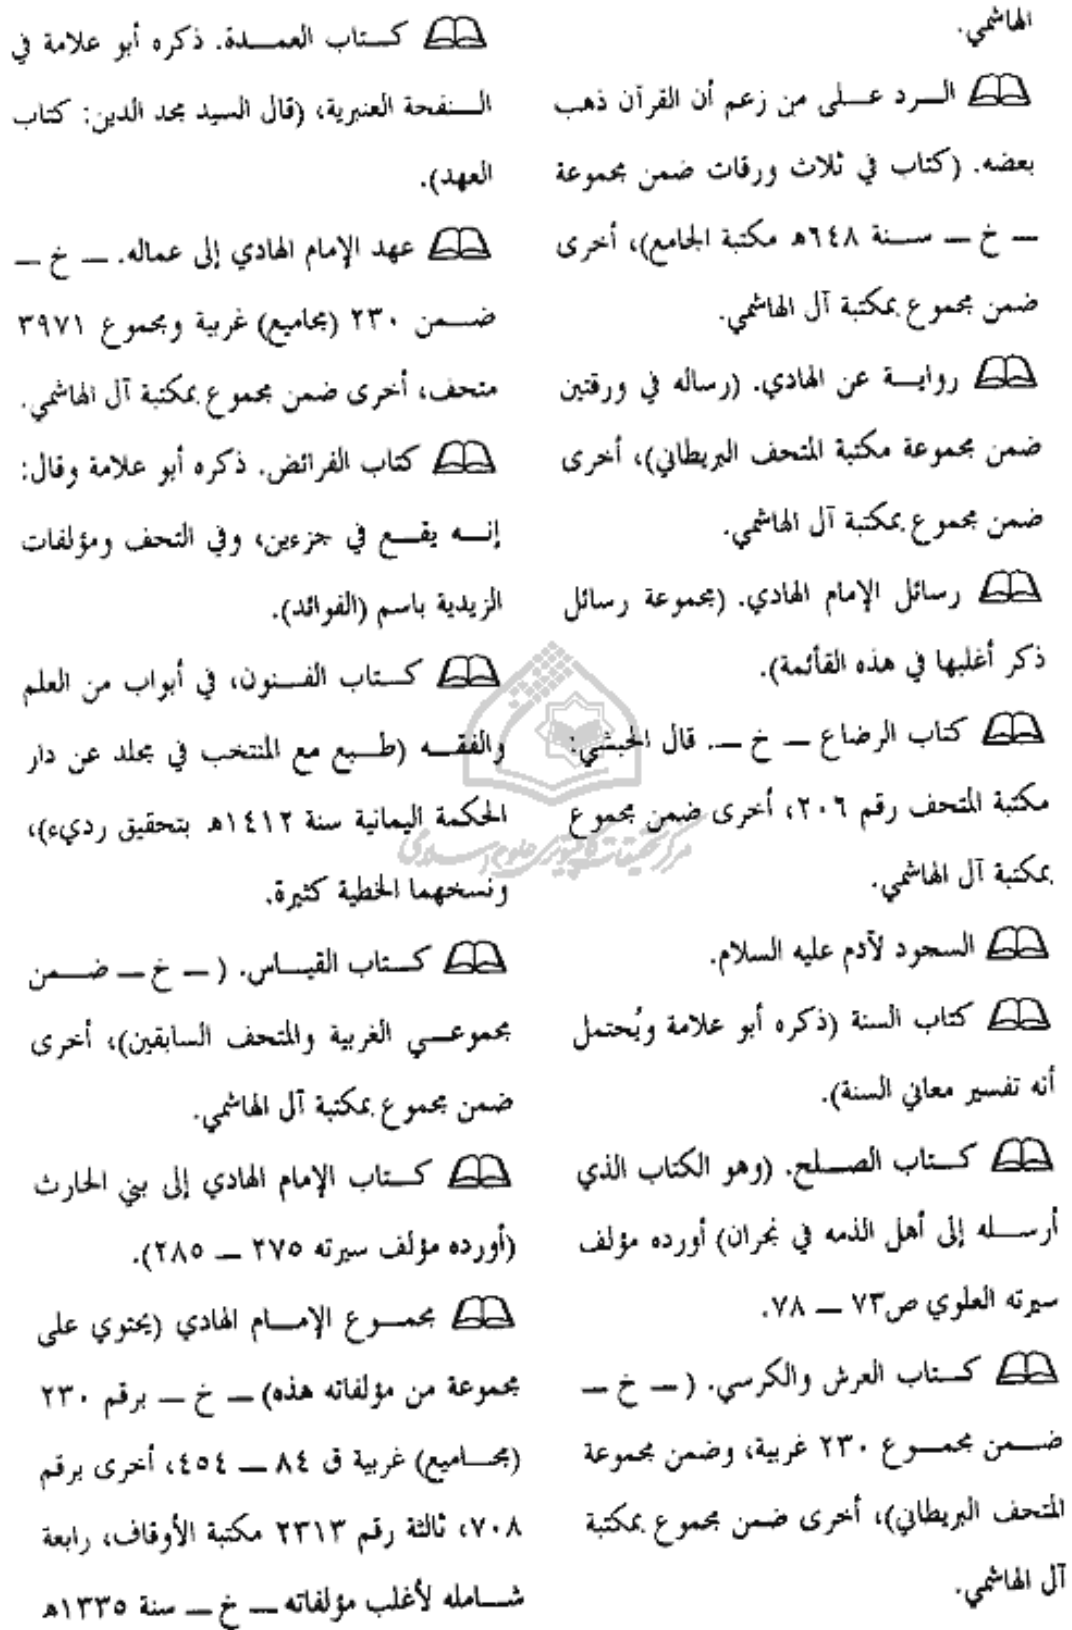 الهاشمي.
الرد على من زعم أن القرآن ذهب
بعضه. (كتاب في ثلاث ورقات ضمن مجموعة
— خ — سنة ٦٤٨هـ مكتبة الجامع)، أخرى
ضمن مجموع بمكتبة آل الهاشمي.
رواية عن الهادي. (رساله في ورقتين
ضمن مجموعة مكتبة المتحف البريطاني)، أخرى
ضمن مجموع بمكتبة آل الهاشمي.
رسائل الإمام الهادي. (مجموعة رسائل
ذكر أغلبها في هذه القأئمة).
كتاب الرضاع — خ —. قال الحبشي:
مكتبة المتحف رقم ٢٠٦، أخرى ضمن مجموع
بمكتبة آل الهاشمي.
السجود لآدم عليه السلام.
كتاب السنة (ذكره أبو علامة ويُحتمل
أنه تفسير معاني السنة).
كتاب الصلح. (وهو الكتاب الذي
أرسله إلى أهل الذمه في نجران) أورده مؤلف
سيرته العلوي ص٧٣ — ٧٨.
كتاب العرش والكرسي. (— خ —
ضمن مجموع ٢٣٠ غربية، وضمن مجموعة
المتحف البريطاني)، أخرى ضمن مجموع بمكتبة
آل الهاشمي.
كتاب العمدة. ذكره أبو علامة في
النفحة العنبرية، (قال السيد مجد الدين: كتاب
العهد).
عهد الإمام الهادي إلى عماله. — خ —
ضمن ٢٣٠ (مجاميع) غربية ومجموع ٣٩٧١
متحف، أخرى ضمن مجموع بمكتبة آل الهاشمي.
كتاب الفرائض. ذكره أبو علامة وقال:
إنه يقع في جزءين، وفي التحف ومؤلفات
الزيدية باسم (الفوائد).
كتاب الفنون، في أبواب من العلم
والفقه (طبع مع المنتخب في مجلد عن دار
الحكمة اليمانية سنة ١٤١٢هـ بتحقيق رديء)،
ونسخهما الخطية كثيرة.
كتاب القياس. (— خ — ضمن
مجموعي الغربية والمتحف السابقين)، أخرى
ضمن مجموع بمكتبة آل الهاشمي.
كتاب الإمام الهادي إلى بني الحارث
(أورده مؤلف سيرته ٢٧٥ — ٢٨٥).
مجموع الإمام الهادي (يحتوي على
مجموعة من مؤلفاته هذه) — خ — برقم ٢٣٠
(مجاميع) غربية ق ٨٤ — ٤٥٤، أخرى برقم
٧٠٨، ثالثة رقم ٢٣١٣ مكتبة الأوقاف، رابعة
شامله لأغلب مؤلفاته — خ — سنة ١٣٣٥هـ
مركز تحقيقات كامپيوترى علوم اسلامى